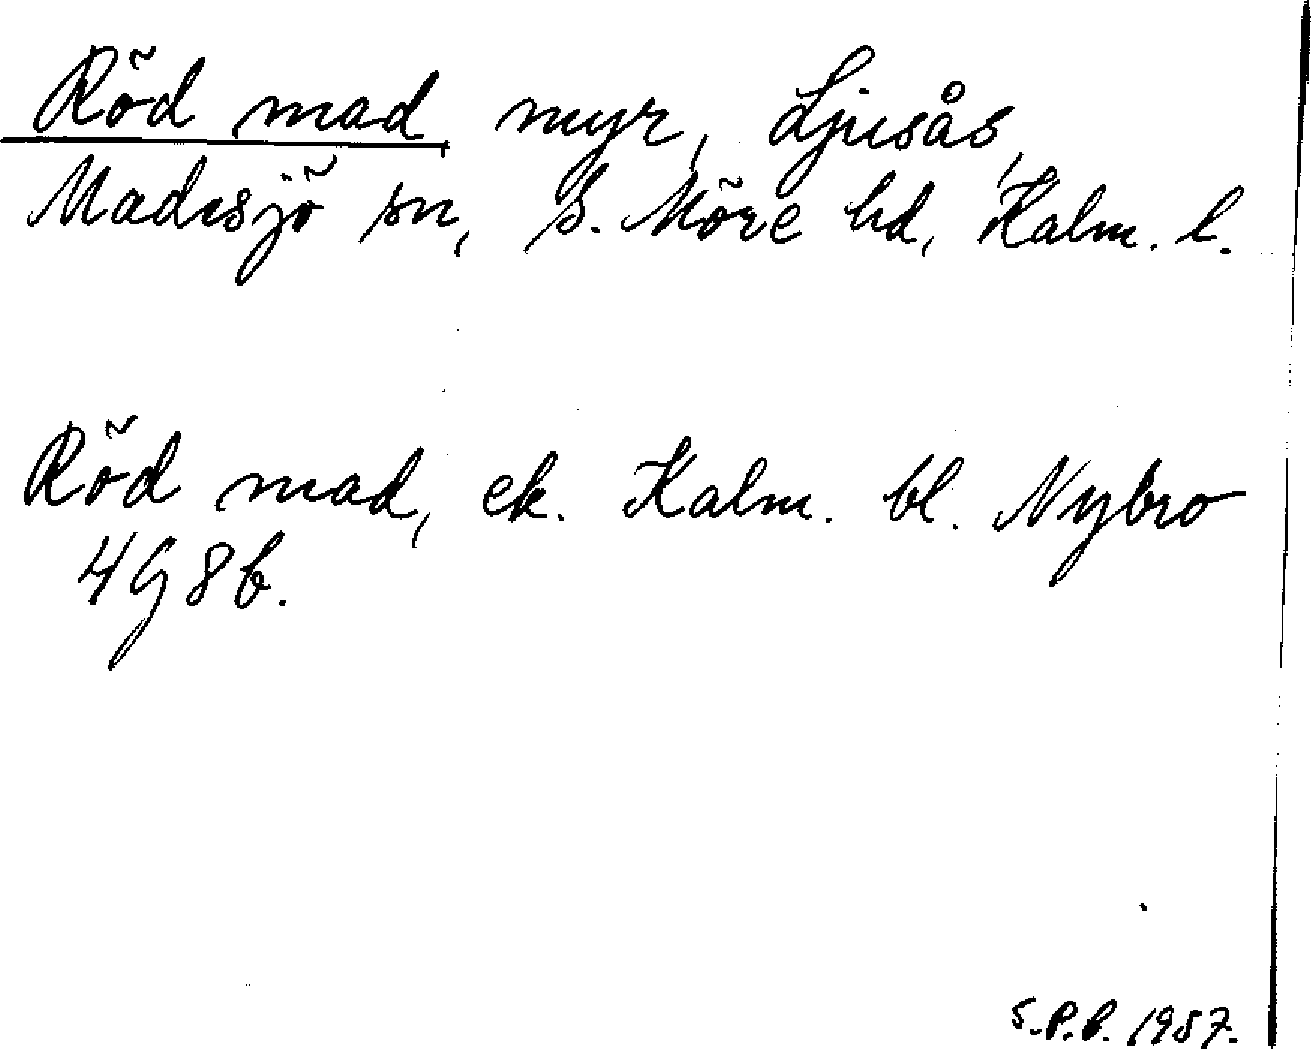 Röd mad myr, Ljusås,
Madesjö sn, S. Möre hd, Kalm. l.
Röd mad, ek. Kalm. bl. Nybro
4G 8b.
S.P.B. 1987.